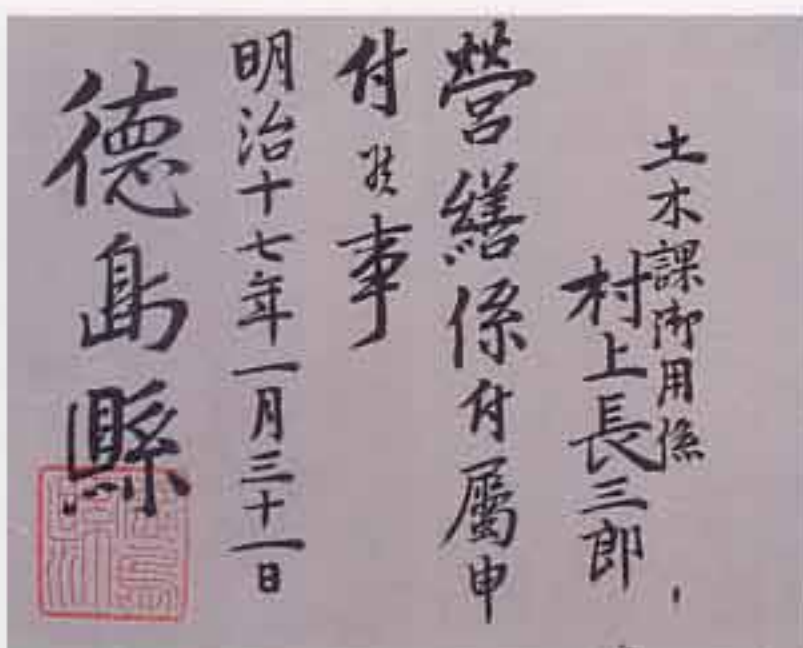 土木課御用係
村上長三郎
營繕係付屬申
付候事
明治十七年一月三十一日
德島縣